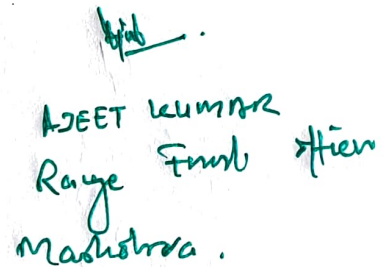 AJEET KUMAR
Range Forest Officer
Mashobra.